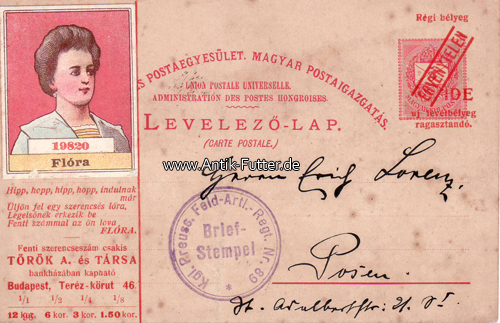 Régi bélyeg
ÉRVÉNYTELEN
S POSTAEGYESÜLET. MAGYAR POSTAIGAZGATÁS.
UNION POSTALE UNIVERSELLE.
ADMINISTRATION DES POSTES HONGROISES.
IDE
uj levélbélyeg
ragasztandó.
LEVELEZŐ-LAP.
(CARTE POSTALE.)
www.Antik-Futter.de
19820
Flóra
Hipp, hopp, hipp, hopp, indulnak
már
Üljön fel egy szerencsés lóra,
Legelsőnek érkezik be
Fenti számmal az ón lova
FLÓRA.
Fenti szerencseszám csakis
TÖRÖK A. és TÁRSA
bankházában kapható
Budapest, Teréz-körut 46.
1/1 1/2 1/4 1/8
12 kor. 6 kor. 3 kor. 1.50 kor.
Herrn Erich Lorenz
Kgl. Preuss. Feld-Artl.-Regt. Nr. 89
Brief-
Stempel
Posen.
St. Adalbertstr. 21. II